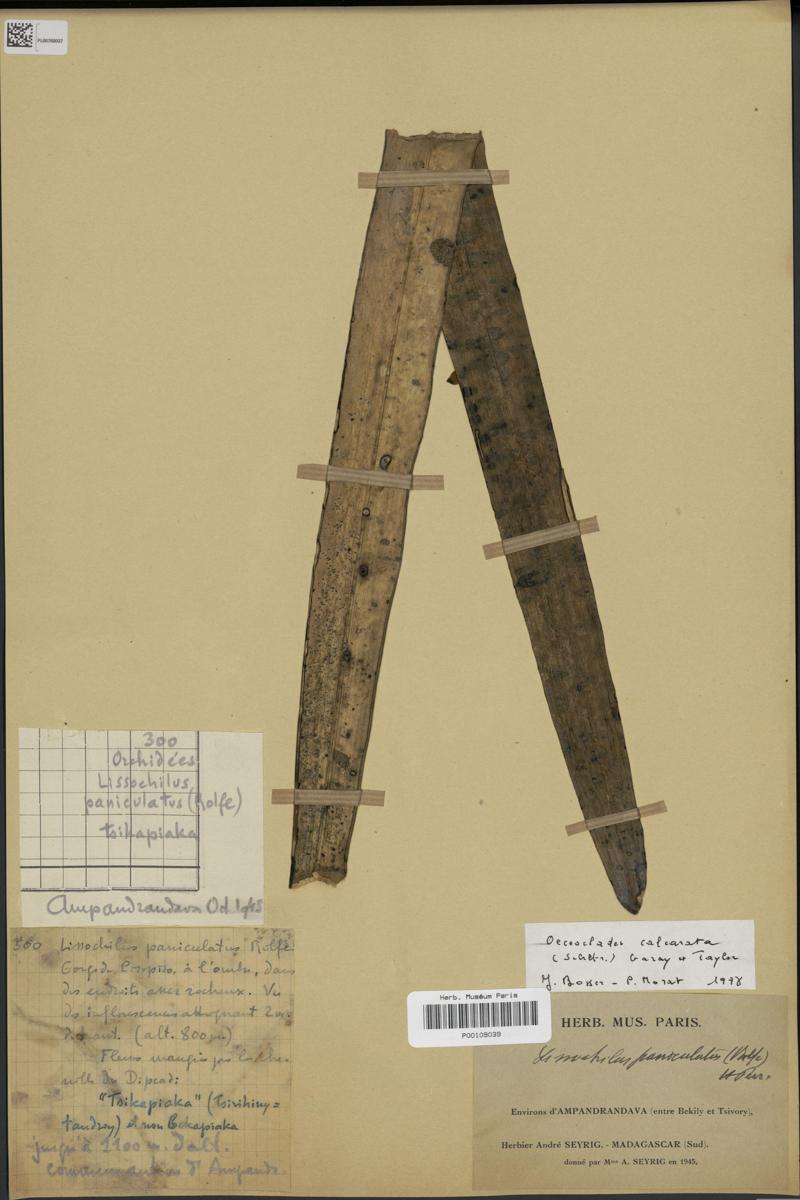 300
Orchidées
Lissochilus
paniculatus (Rolfe)
tsikapiaka
Ampandrandava Oct 1943
300 Lissochilus paniculatus Rolfe
à l'ombre, dans
des endroits assez rocheux. Vu
des inflorescences atteignant 2m
(alt. 800 m.)
Fleurs
"Tsikapiaka" (Tsivihiny=
tandroy) et non Bekapiaka
jusqu'à 1100 m. d'alt.
Oeceoclades calcarata
(Schltr.) Garay et Taylor
J. Bosser - P. Morat 1998
Herb. Muséum Paris
P00109039
HERB. MUS. PARIS.
Lissochilus paniculatus (Rolfe)
H. Perr.
Environs d'AMPANDRANDAVA (entre Bekily et Tsivory),
Herbier André SEYRIG. - MADAGASCAR (Sud).
donné par Mme A. SEYRIG en 1945,